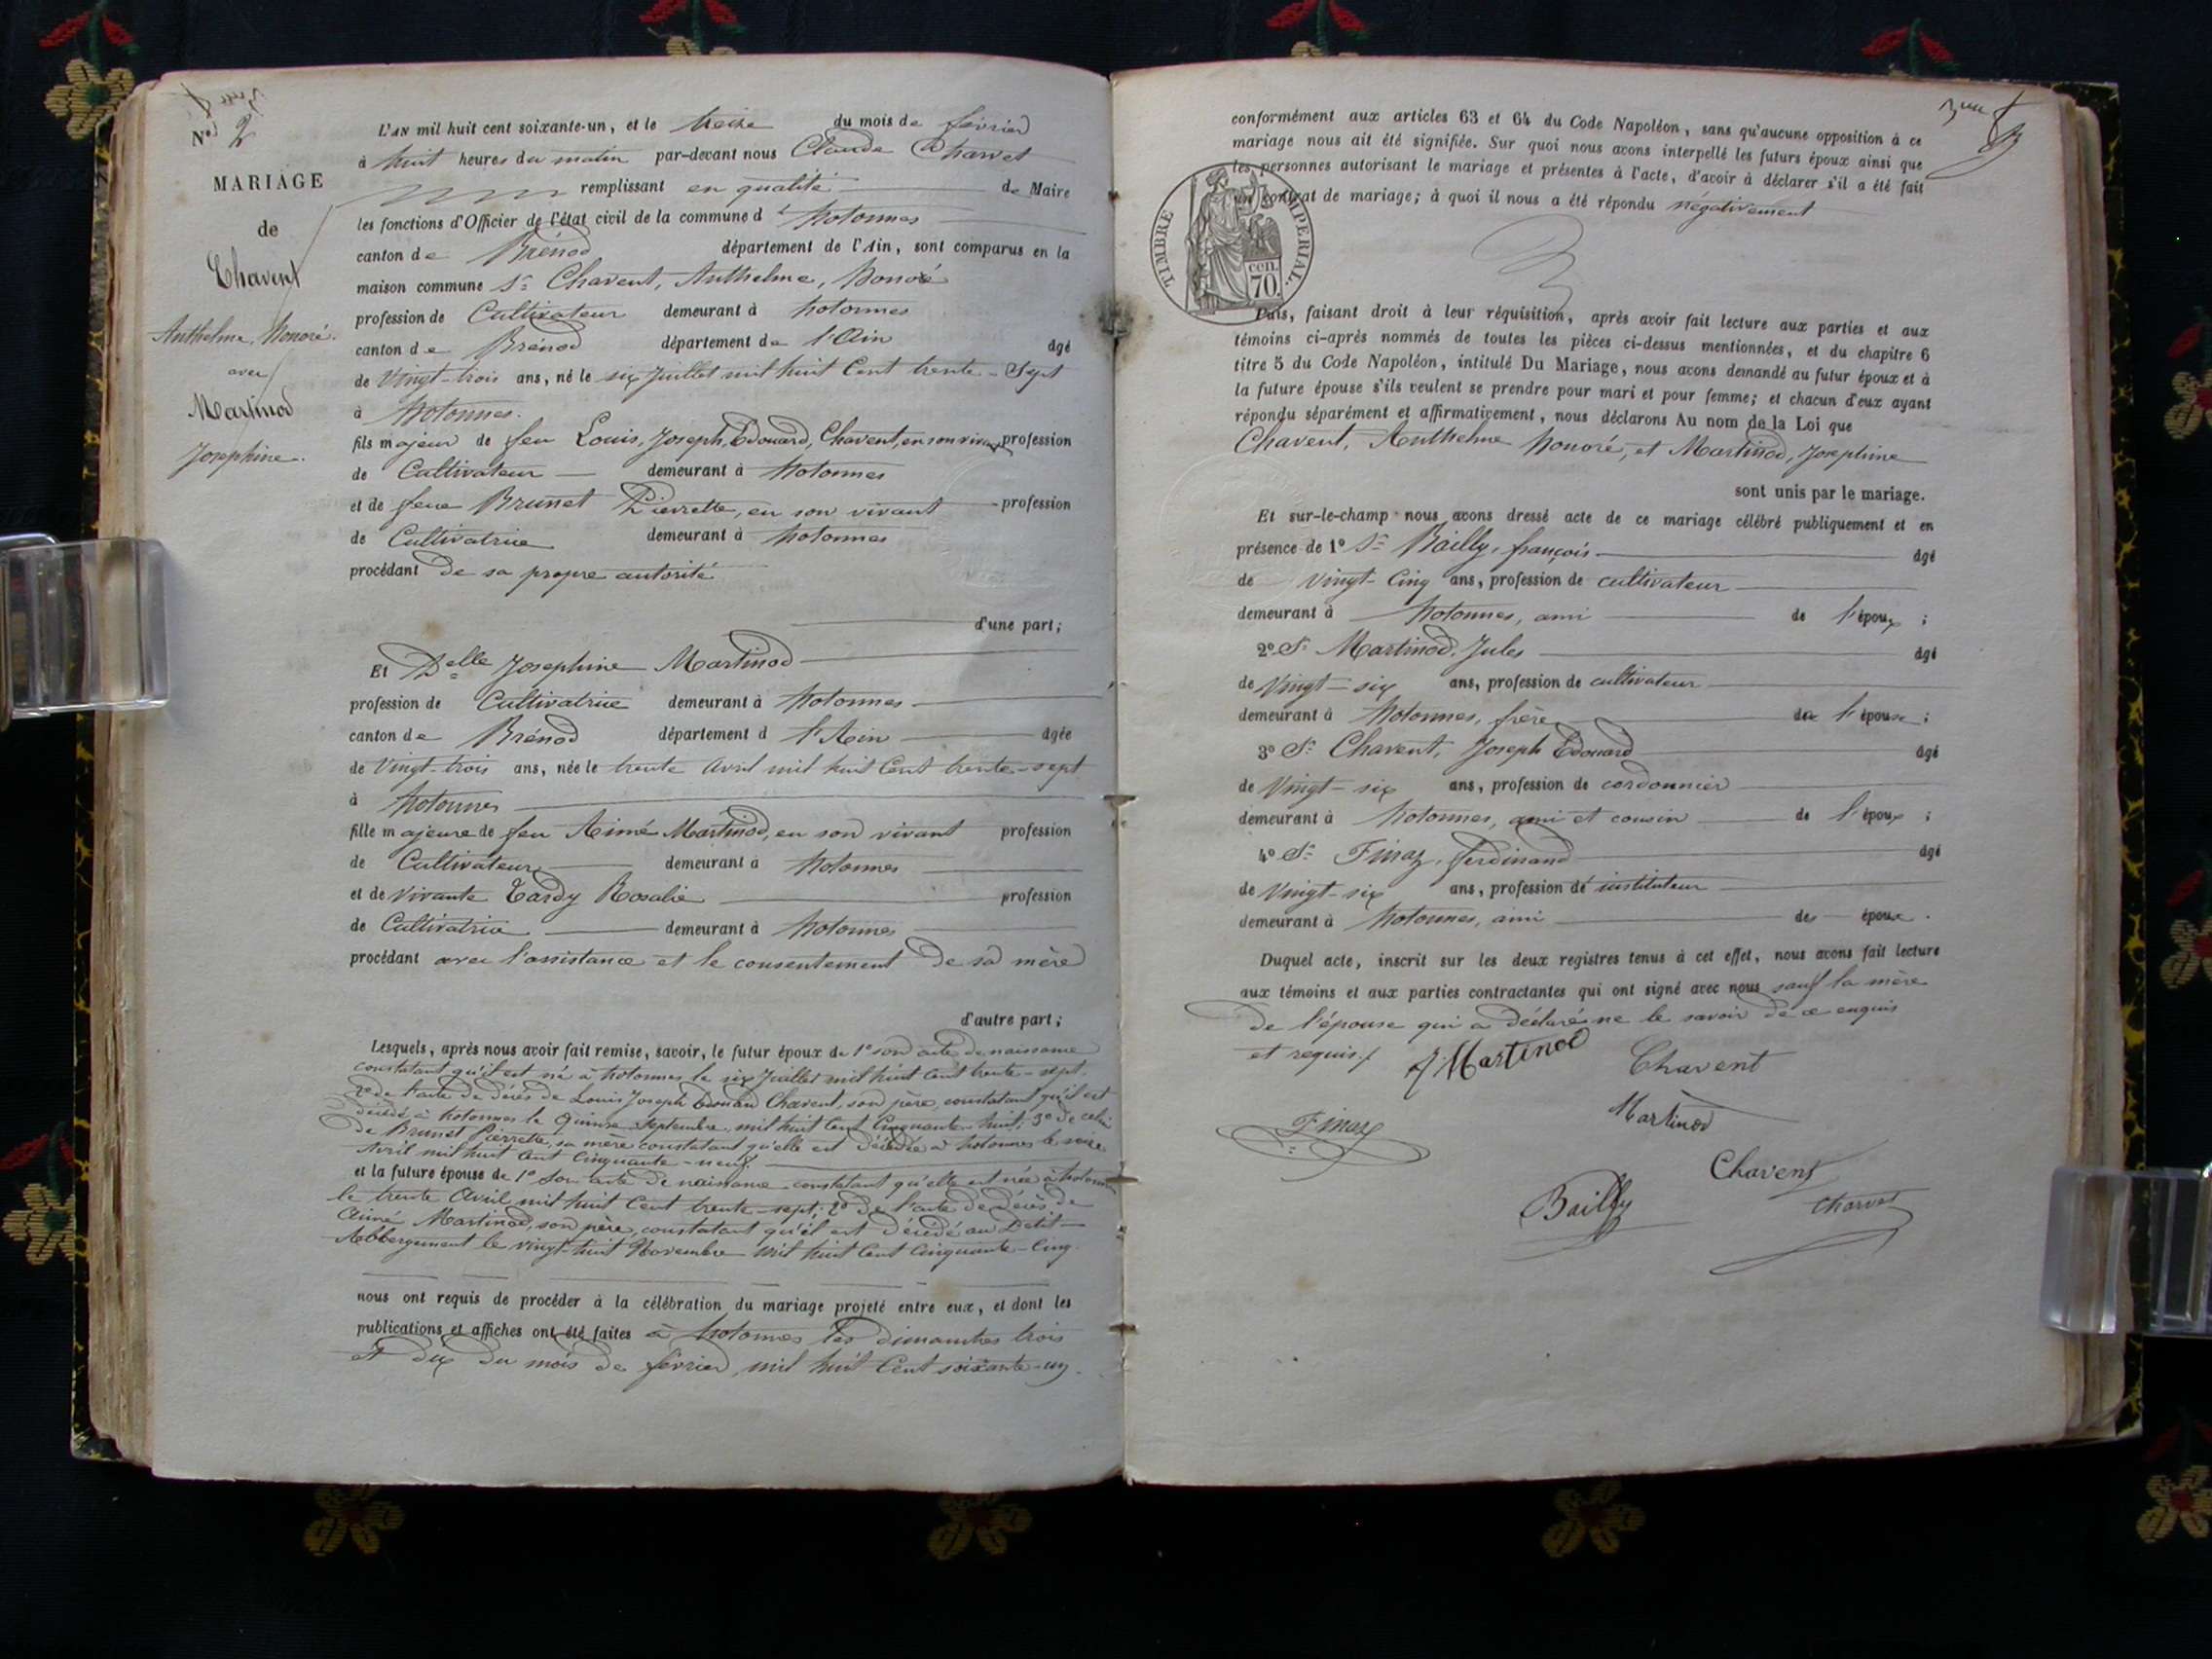 No 2
MARIAGE
de
Chavent
Anthelme, honoré.
avec
Martinod
Josephine.
L'AN mil huit cent soixante-un, et le treize du mois de février
à huit heures du matin par-devant nous Claude Charvet
remplissant en qualité de Maire
les fonctions d'Officier de l'état civil de la commune d'hotonnes
canton de Brénod département de l'Ain, sont comparus en la
maison commune Sr Chavent, Anthelme, honoré
profession de Cultivateur demeurant à hotonnes
canton de Brénod département de l'Ain âgé
de Vingt-trois ans, né le six Juillet mil huit Cent trente-Sept
à hotonnes.
fils majeur de feu Louis, Joseph, Edouard, Chavent, en son vivant profession
de Cultivateur demeurant à hotonnes
et de feue Brunet Pierrette, en son vivant profession
de Cultivatrice demeurant à hotonnes
procédant de sa propre autorité
d'une part;
Et Delle Josephine Martinod
profession de Cultivatrice demeurant à hotonnes
canton de Brénod département d l'Ain âgée
de Vingt-trois ans, née le trente Avril mil huit Cent trente-sept
à hotonnes
fille majeure de feu Aimé Martinod, en son vivant profession
de Cultivateur demeurant à hotonnes
et de vivante Tardy Rosalie profession
de Cultivatrice demeurant à hotonnes
procédant avec l'assistance et le consentement de sa mère
d'autre part;
Lesquels, après nous avoir fait remise, savoir, le futur époux de 1o son acte de naissance
constatant qu'il est né à hotonnes le six Juillet mil huit Cent trente-sept.
2o de l'acte de décès de Louis Joseph Edouard Chavent, son père, constatant qu'il est
décédé à hotonnes le Quinze Septembre mil huit Cent Cinquante-huit; 3o de celui
de Brunet Pierrette, sa mère constatant qu'elle est décédée à hotonnes le seize
Avril mil huit Cent Cinquante-neuf.
et la future épouse de 1o Son acte de naissance constatant qu'elle est née à hotonnes
le trente Avril mil huit Cent trente-sept; 2o de l'acte de décès de
Aimé Martinod, son père, constatant qu'il est décédé au Petit-
Abbergement le vingt-huit Novembre mil huit Cent Cinquante-Cinq.
nous ont requis de procéder à la célébration du mariage projeté entre eux, et dont les
publications et affiches ont été faites à hotonnes les dimanches trois
et dix du mois de février, mil huit Cent soixante-un.
conformément aux articles 63 et 64 du Code Napoléon, sans qu'aucune opposition à ce
mariage nous ait été signifiée. Sur quoi nous avons interpellé les futurs époux ainsi que
les personnes autorisant le mariage et présentes à l'acte, d'avoir à déclarer s'il a été fait
un contrat de mariage; à quoi il nous a été répondu négativement
TIMBRE IMPERIAL.
cen.
70.
Puis, faisant droit à leur réquisition, après avoir fait lecture aux parties et aux
témoins ci-après nommés de toutes les pièces ci-dessus mentionnées, et du chapitre 6
titre 5 du Code Napoléon, intitulé Du Mariage, nous avons demandé au futur époux et à
la future épouse s'ils veulent se prendre pour mari et pour femme; et chacun d'eux ayant
répondu séparément et affirmativement, nous déclarons Au nom de la Loi que
Chavent, Anthelme honoré, et Martinod, Josephine
sont unis par le mariage.
Et sur-le-champ nous avons dressé acte de ce mariage célébré publiquement et en
présence de 1o Sr Bailly, françois âgé
de vingt-Cinq ans, profession de cultivateur
demeurant à hotonnes, ami de l'époux;
2o Sr Martinod, Jules âgé
de Vingt-six ans, profession de cultivateur
demeurant à hotonnes, frère de l'épouse;
3o Sr Chavent, Joseph Edouard âgé
de Vingt-six ans, profession de cordonnier
demeurant à hotonnes, ami et cousin de l'époux;
4o Sr Finaz, ferdinand âgé
de Vingt-six ans, profession d'instituteur
demeurant à hotonnes, ami des époux.
Duquel acte, inscrit sur les deux registres tenus à cet effet, nous avons fait lecture
aux témoins et aux parties contractantes qui ont signé avec nous sauf la mère
de l'épouse qui a déclaré ne le savoir de ce enquis
et requis.
J Martinod Chavent
Finaz Martinod
Chavent
Bailly Charvet